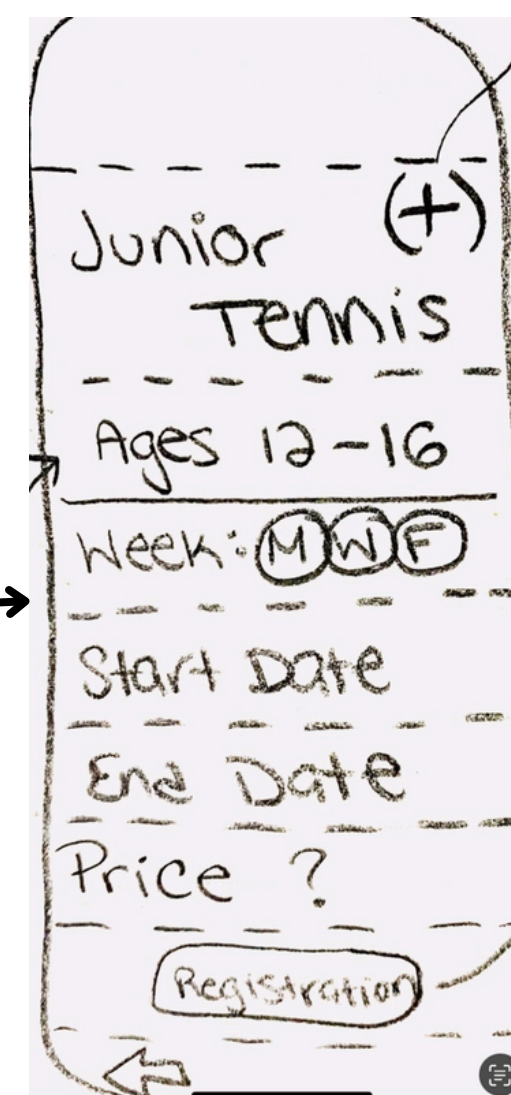 Junior (+)
Tennis
Ages 12-16
Week: M W F
Start Date
End Date
Price ?
Registration